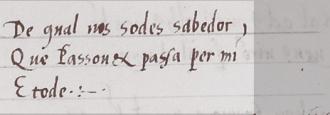 De qual nos sodes sabedor,
Que Passou ex passa per mi
E tode.:—.